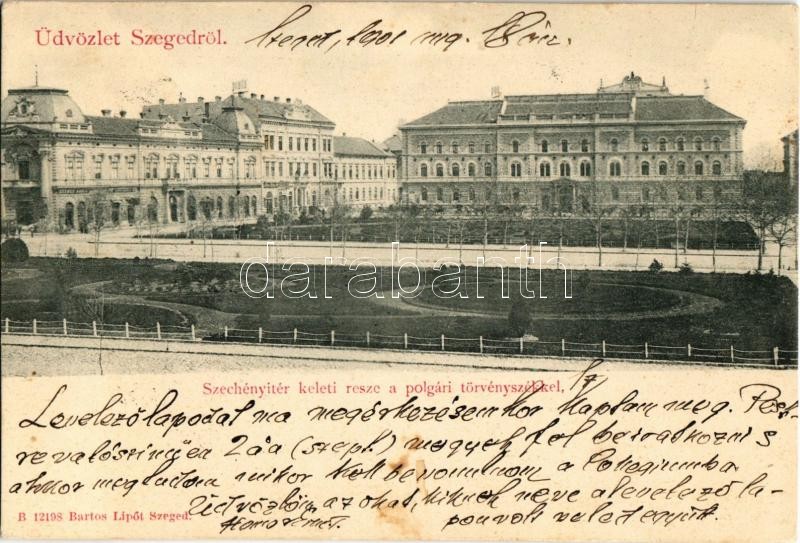 Üdvözlet Szegedről.
Szeged, 1901 aug.
darabanth
Szechényitér keleti resze a polgári törvényszékkel.
Levelezőlapodat ma megérkezésemkor kaptam meg.
valószinűen 2-án (szept.) megyek fel beiratkozni s
akkor megtudom mikor kell bevonulnom a
Üdvözlöm azokat, kiknek neve a levelezőla-
pon volt veled együtt.
B 12198 Bartos Lipót Szeged.